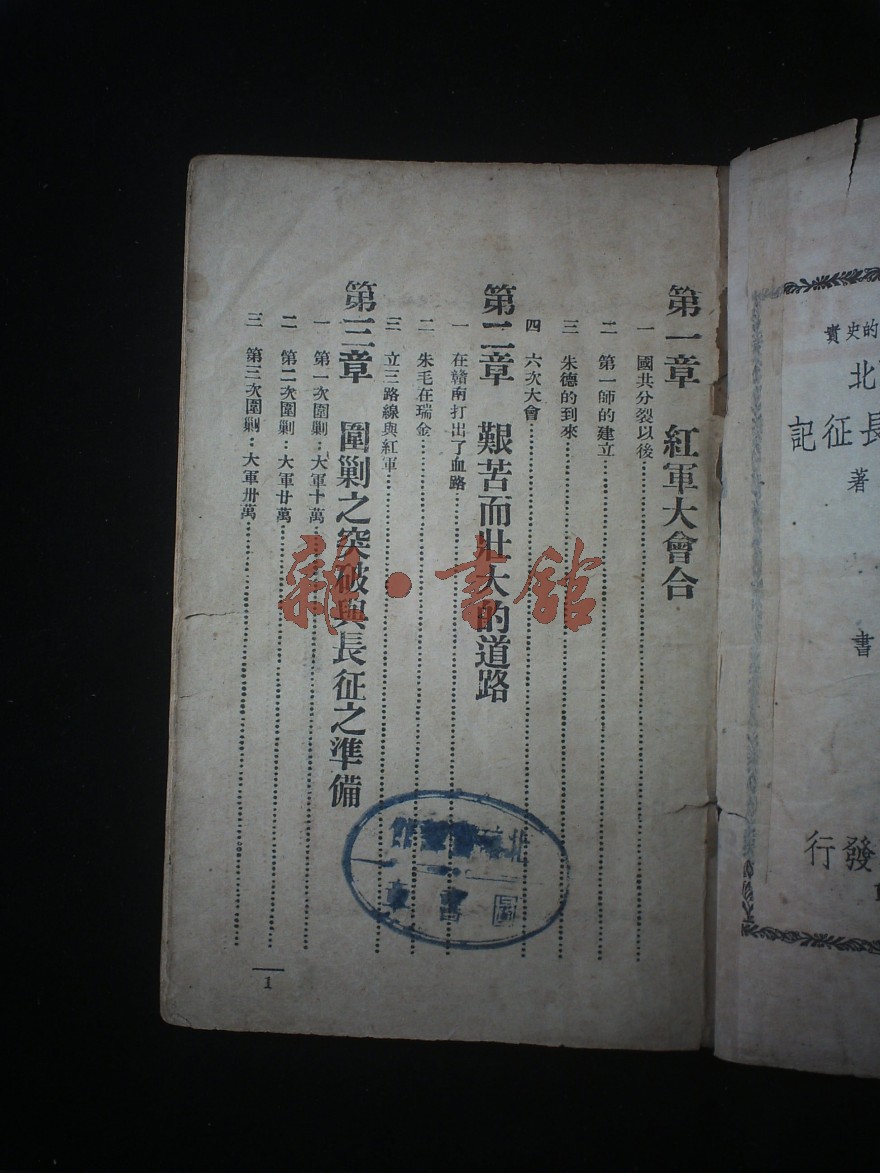 第一章　紅軍大會合
一　國共分裂以後
二　第一師的建立
三　朱德的到來
四　六次大會
第二章　艱苦而壯大的道路
一　在贛南打出了血路
二　朱毛在瑞金
三　立三路線與紅軍
第三章　圍剿之突破與長征之準備
一　第一次圍剿：大軍十萬
二　第二次圍剿：大軍廿萬
三　第三次圍剿：大軍卅萬
1
的史實
北
長征記
著
書
發行
雜·書館
圖
書
章